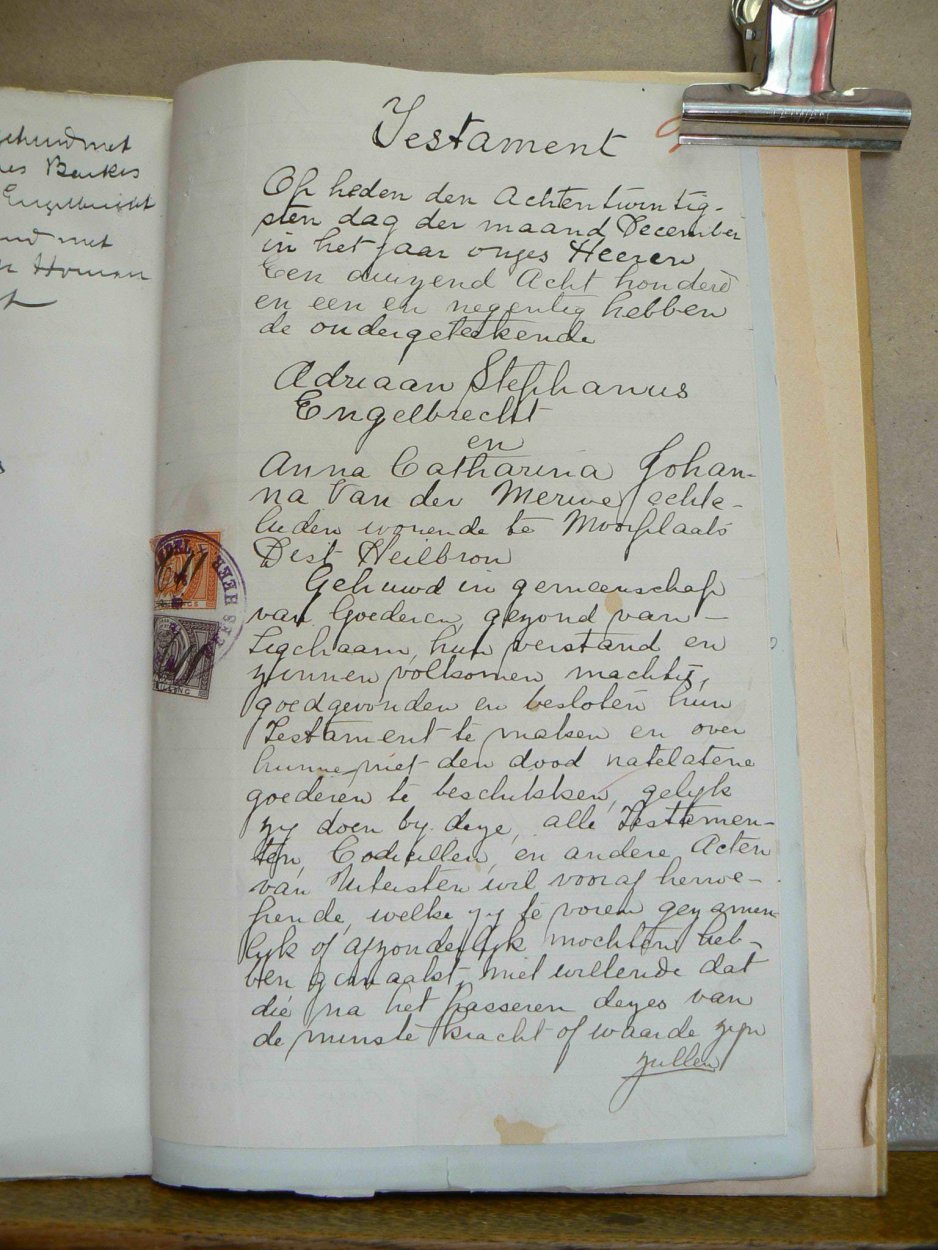 gehuwd met
Engelbrecht
met
Homan
Testament
Op heden den Achtentwintig-
sten dag der maand December
in het jaar onzes Heeren
Een duizend Acht honderd
en een en negentig hebben
de ondergeteekende
Adriaan Stephanus
Engelbrecht
en
Anna Catharina Johan-
na Van der Merwe echte-
lieden wonende te Mooiplaats
Dist Heilbron
Gehuwd in gemeenschap
van Goederen, gezond van
Ligchaam, hun verstand en
zinnen volkomen machtig,
goedgevonden en besloten hun
Testament te maken en over
hunne met den dood natelatene
goederen te beschikken, gelijk
zy doen by deze, alle Testamen-
ten, Codicillen, en andere Acten
van Uitersten wil vooraf herroe-
pende, welke zy te voren gezamen
lijk of afzonderlijk mochten heb-
ben gemaakt, niet willende dat
die na het passeren dezes van
de minste kracht of waarde zijn
zullen